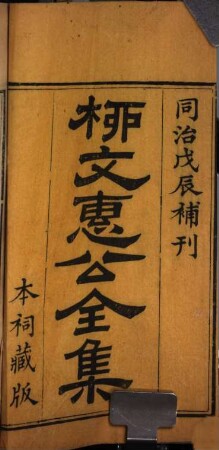 同治戊辰補刊
柳文惠公全集
本祠藏版